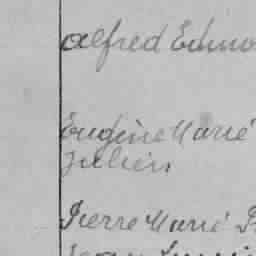 Alfred Edmo
Eugène Marié
Julien
Pierre Marié P
Jean